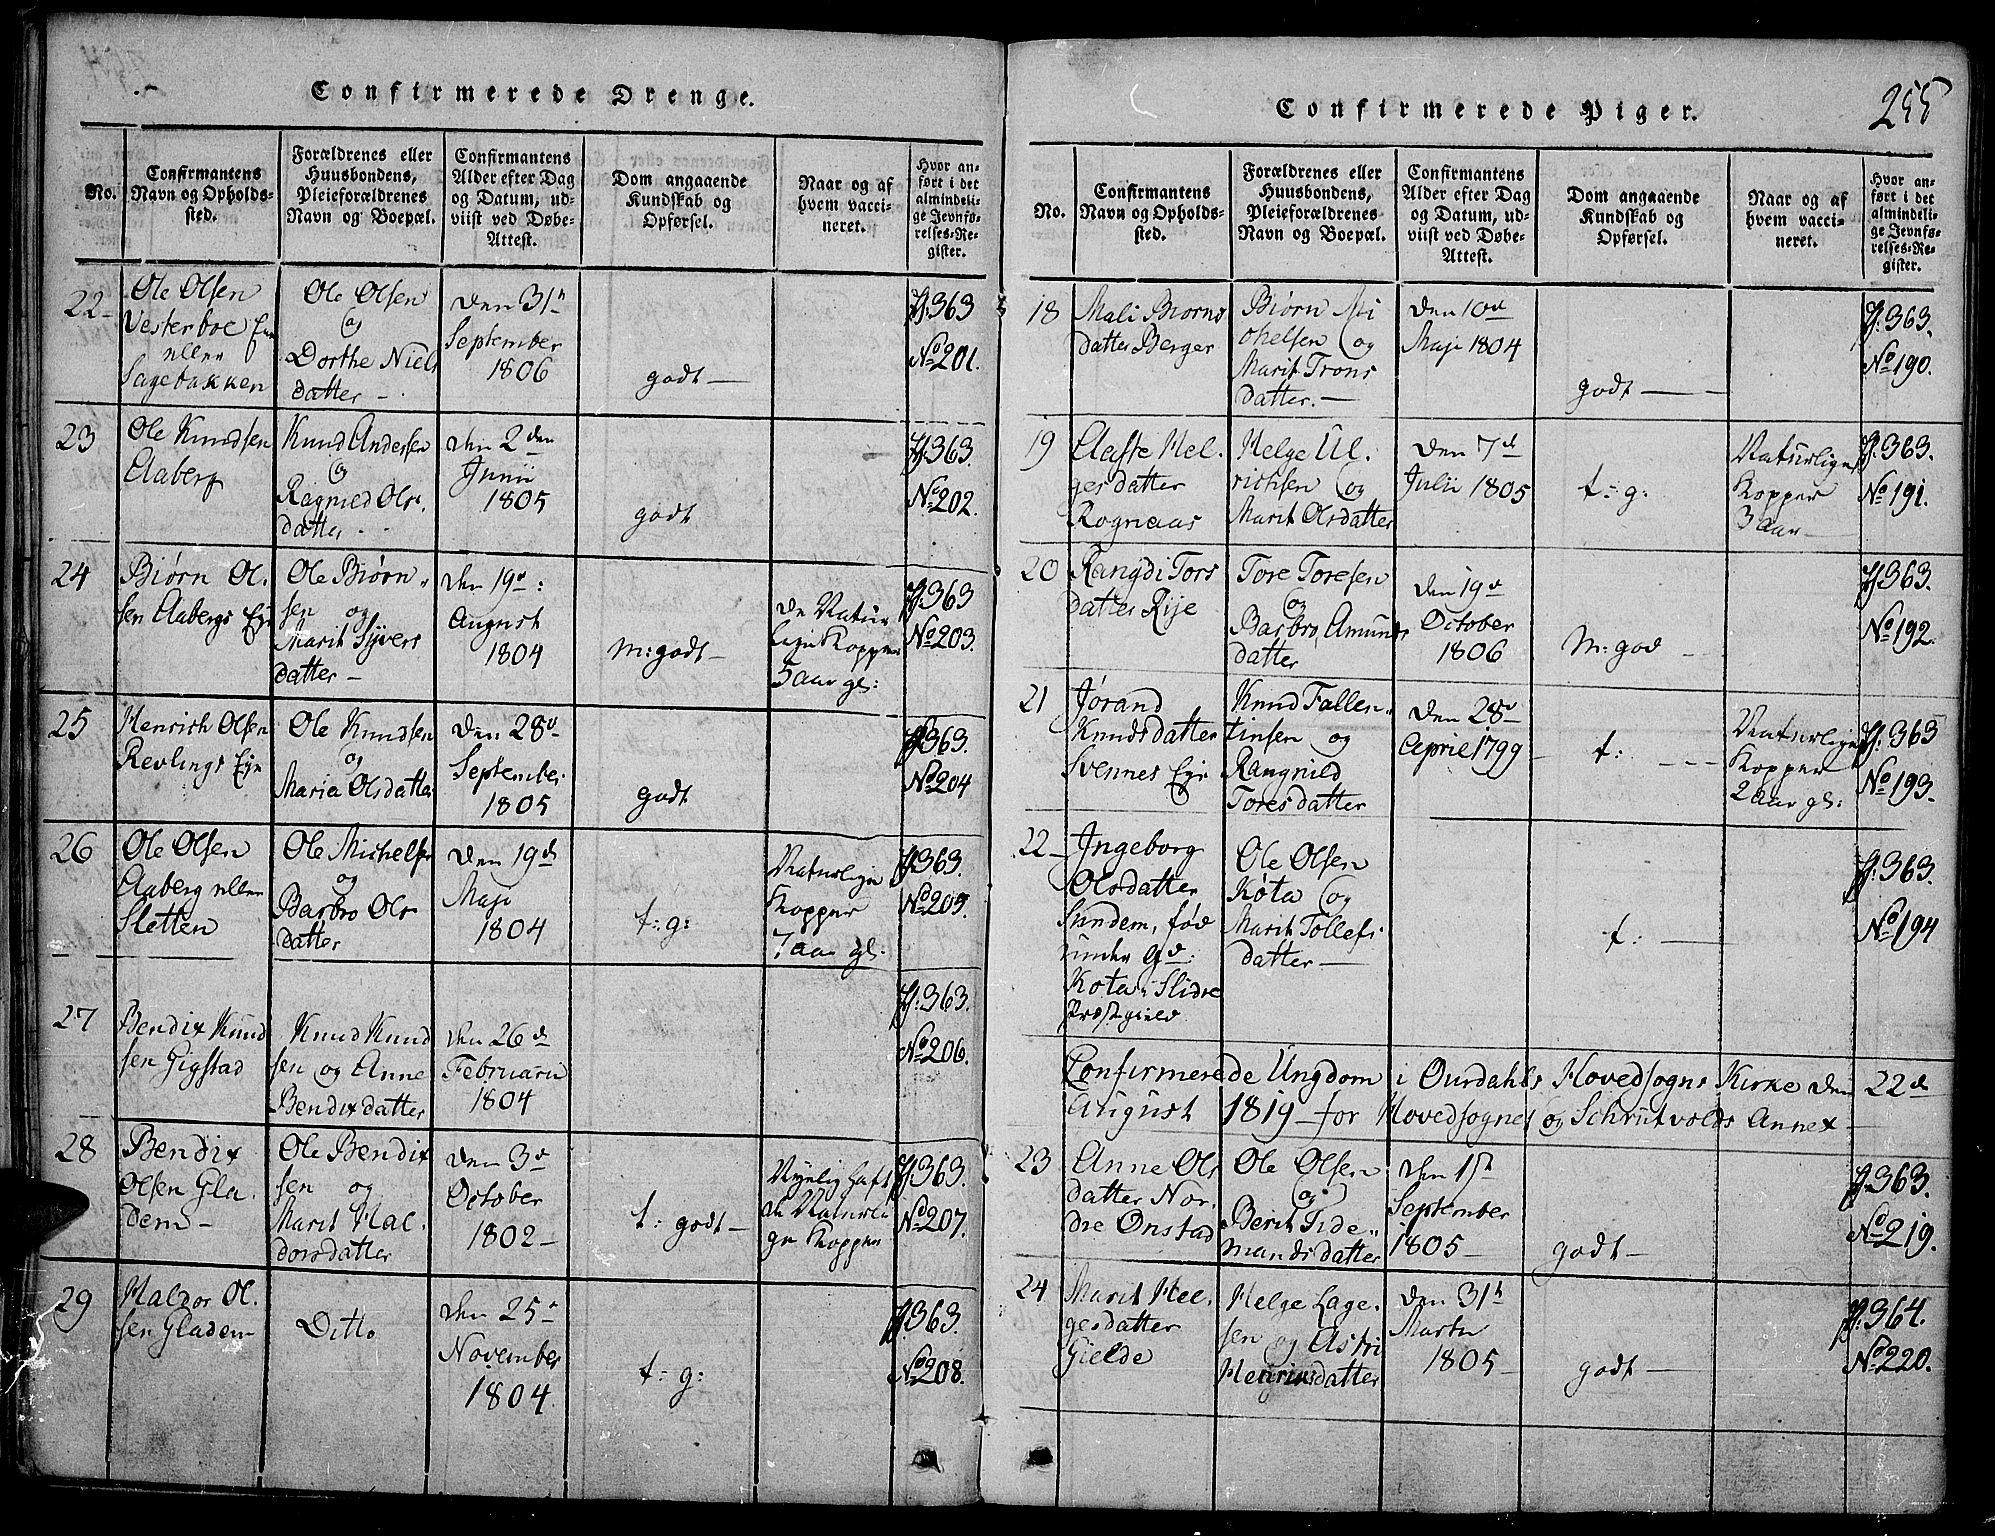 Confirmerede Drenge.
No.
Confirmantens
Navn og Opholds-
sted.
Forældrenes eller
Huusbondens,
Pleieforældrenes
Navn og Boepæl.
Confirmantens
Alder efter Dag
og Datum, ud-
viist ved Døbe-
Attest.
Dom angaaende
Kundskab og
Opførsel.
Naar og af
hvem vacci-
neret.
Hvor an-
ført i det
almindeli-
ge Jevnfø-
relses-Re-
gister.
22
Ole Olsen
Vesterboe
eller
Sagebakken
Ole Olsen
og
Dorthe Niels
datter
Den 31
September
1806
godt
363
No 201.
23
Ole Knudsen
Aaberg
Knud Andersen
og
Ragnild Ols
datter
den 2den
Junii
1805
godt
363.
No 202.
24
Biørn Ol.
sen Aabergs Eye
Ole Biørn
sen og
Marit Syvers
datter
den 19d:
August
1804
m: godt
de Natur
lige Kopper
5 aar gl:
363
No 203.
25
Henrich Olsen
Revlings Eye
Ole Knudsen
og
Maria Olsdatter
Den 28d
September
1805
godt
363.
No 204
26
Ole Olsen
Aaberg eller
Sletten
Ole Michelsen
og
Barbro Ols
datter
Den 19d
Maji
1804
t: g:
Naturlige
Kopper
7 aar gl:
363.
No 205.
27
Bendix Knud
sen Gigstad
Knud Knud
sen og Anne
Bendixdatter
den 26d
Februarii
1804
363.
No 206.
28
Bendix
Olsen Gla
dem
Ole Bendix
sen og
Marit Hal
dorsdatter
den 3d
October
1802
t: godt
Nylig haft
de Naturli
ge Kopper
363.
No 207.
29
Haldor Ol.
sen Gladem
Ditto
den 25
November
1804
t: g:
363.
No 208.
255
Confirmerede Piger.
No.
Confirmantens
Navn og Opholds-
sted.
Forældrenes eller
Huusbondens,
Pleieforældrenes
Navn og Boepæl.
Confirmantens
Alder efter Dag
og Datum, ud-
viist ved Døbe-
Attest.
Dom angaaende
Kundskab og
Opførsel.
Naar og af
hvem vacci-
neret.
Hvor an-
ført i det
almindeli-
ge Jevnfø-
relses-Re-
gister.
18
Mali Biørns
datter Berger
Biørn Mi
chelsen og
Marit Trons
datter.
Den 10d
Maji 1804
godt
363.
No 190.
19
Claste Hel.
gesdatter
Rognaas
Helge Ul.
richsen og
Marit Olsdatter
Den 7d
Julii 1805
t: g:
Naturlige
Kopper
3 aar
363.
No 191.
20
Rangdi Tors
datter Rije
Tore Toresen
og
Barbro Amunds
datter
Den 19d
October
1806
M: god
363.
No 192.
21
Jørand
Knudsdatter
Svennes Eye
Knud Fallen
tinsen og
Rangnild
Toresdatter
Den 28d
April 1799
t:
Naturlige
Kopper
2 aar gl:
363
No 193.
22
Ingeborg
Olsdatter
Sundem, fød
under Gd:
Køta i Slidre
Præstegield
Ole Olsen
Køta og
Marit Tollefs
datter
t:
363.
No 194
Confirmerede Ungdom i Ourdahls Hovedsogns Kirke den 22d
August 1819 for Hovedsognet og Schrutvolds Annex
23
Anne Ols
datter Nor.
dre Onstad
Ole Olsen
og
Berit Tide
mandsdatter
den 1ste
September
1805
godt
363.
No 219.
24
Marit Hel.
gesdatter
Gielde
Helge Lage.
sen og Astri
Henricsdatter
Den 31
Martii
1805
godt
364.
No 220.